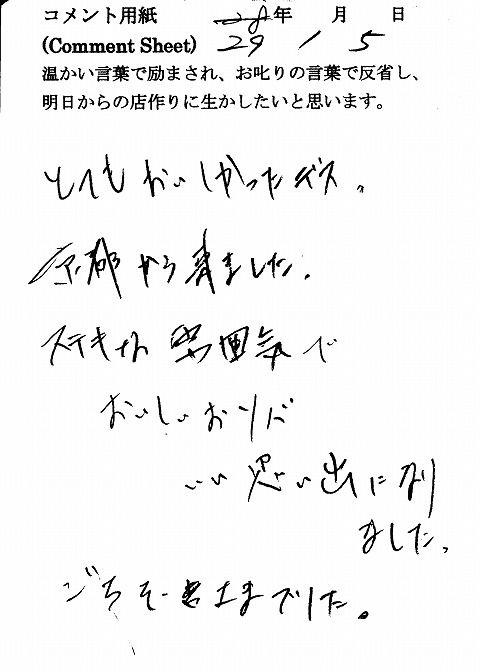 コメント用紙 28年 月 日
(Comment Sheet) 29 1 5
温かい言葉で励まされ、お叱りの言葉で反省し、
明日からの店作りに生かしたいと思います。
とてもおいしかったデス。
京都から来ました。
ステキな雰囲気で
おいしい
いい思い出になり
ました。
ごちそーさまでした。